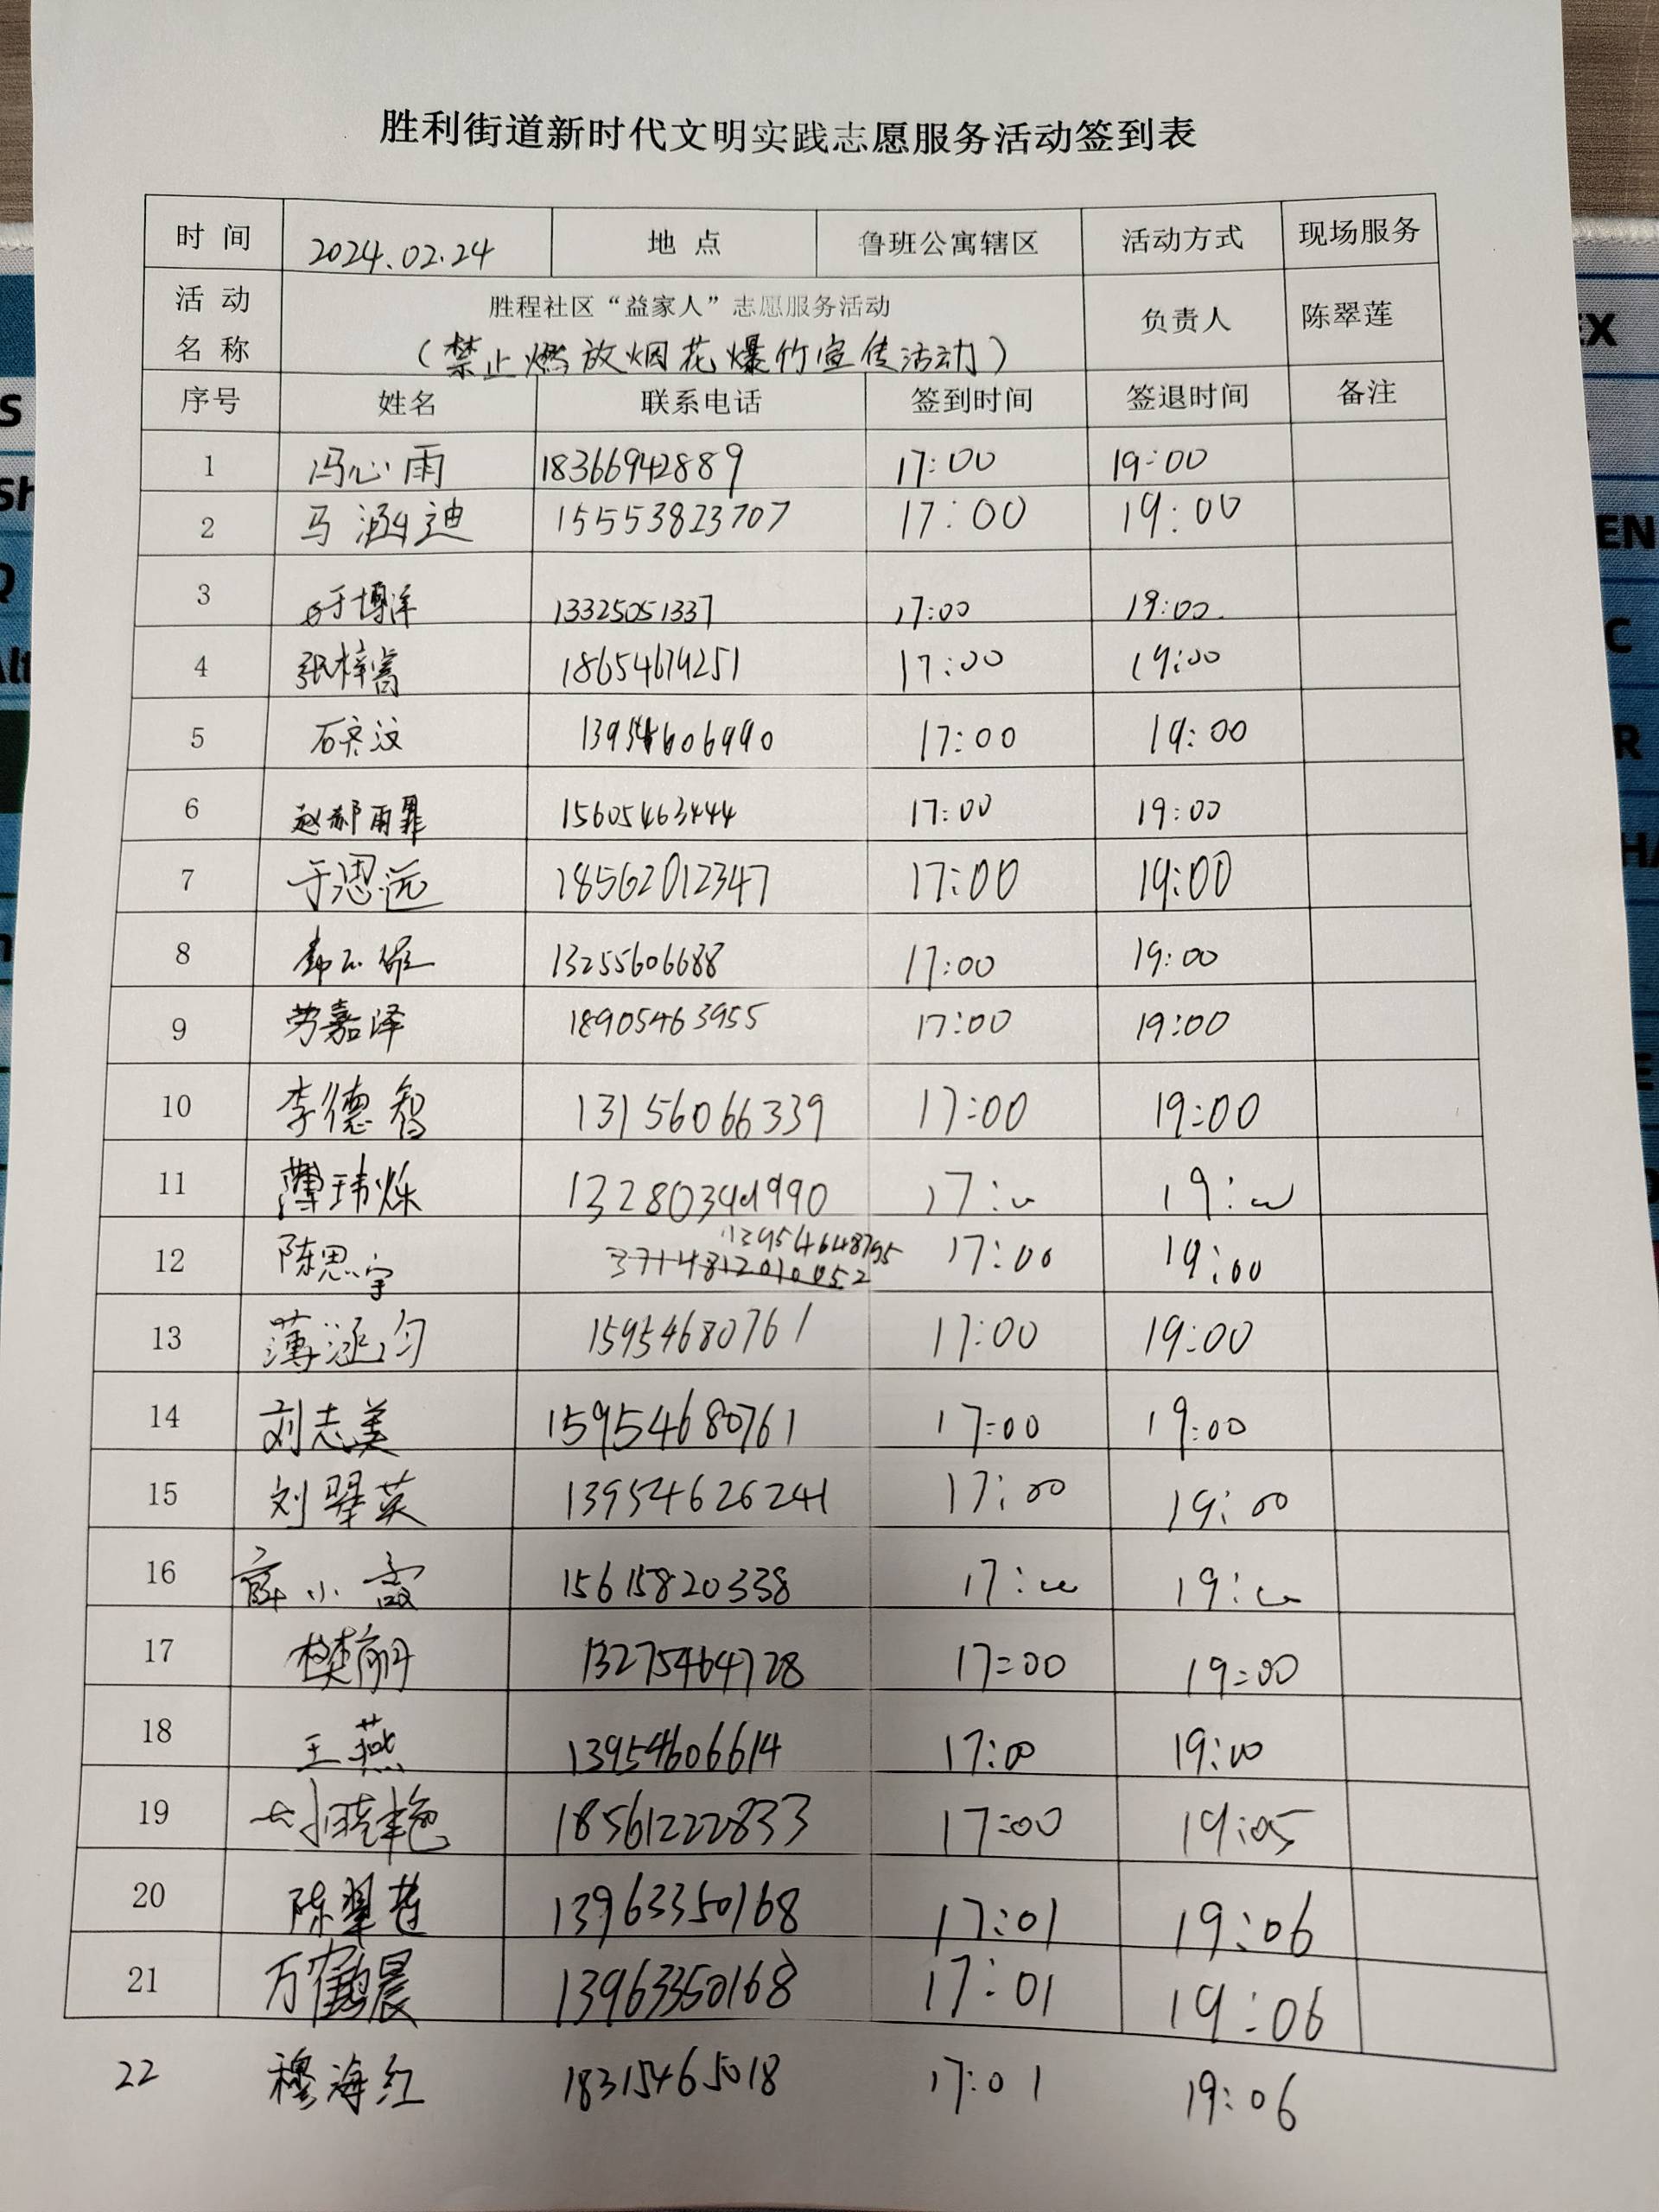 胜利街道新时代文明实践志愿服务活动签到表
时 间 2024.02.24 地 点 鲁班公寓辖区 活动方式 现场服务
活 动 名 称 胜程社区“益家人”志愿服务活动 负责人 陈翠莲
(禁止燃放烟花爆竹宣传活动)
序号 姓名 联系电话 签到时间 签退时间 备注
1 冯心雨 18366942889 17:00 19:00
2 马涵迪 15553823707 17:00 19:00
3 于博洋 13325051337 17:00 19:00
4 张梓 18654674251 17:00 19:00
5 石奕汶 13954606990 17:00 19:00
6 赵郝雨霏 15605463444 17:00 19:00
7 于思远 18562012347 17:00 19:00
8 13255606688 17:00 19:00
9 劳嘉泽 18905463955 17:00 19:00
10 李德智 13156066339 17:00 19:00
11 薄玮烁 17:00 19:00
12 陈思宇 13954648795 17:00 19:00
13 薄涵匀 15954680761 17:00 19:00
14 刘志美 15954680761 17:00 19:00
15 刘翠英 13954626241 17:00 19:00
16 薛小霞 15615820338 17:00 19:00
17 樊前丹 13275464728 17:00 19:00
18 王燕 13954606614 17:00 19:00
19 晓艳 18561222833 17:00 19:05
20 陈翠莲 13963350168 17:01 19:06
21 万鹤晨 13963350168 17:01 19:06
22 穆海红 18315465018 17:01 19:06